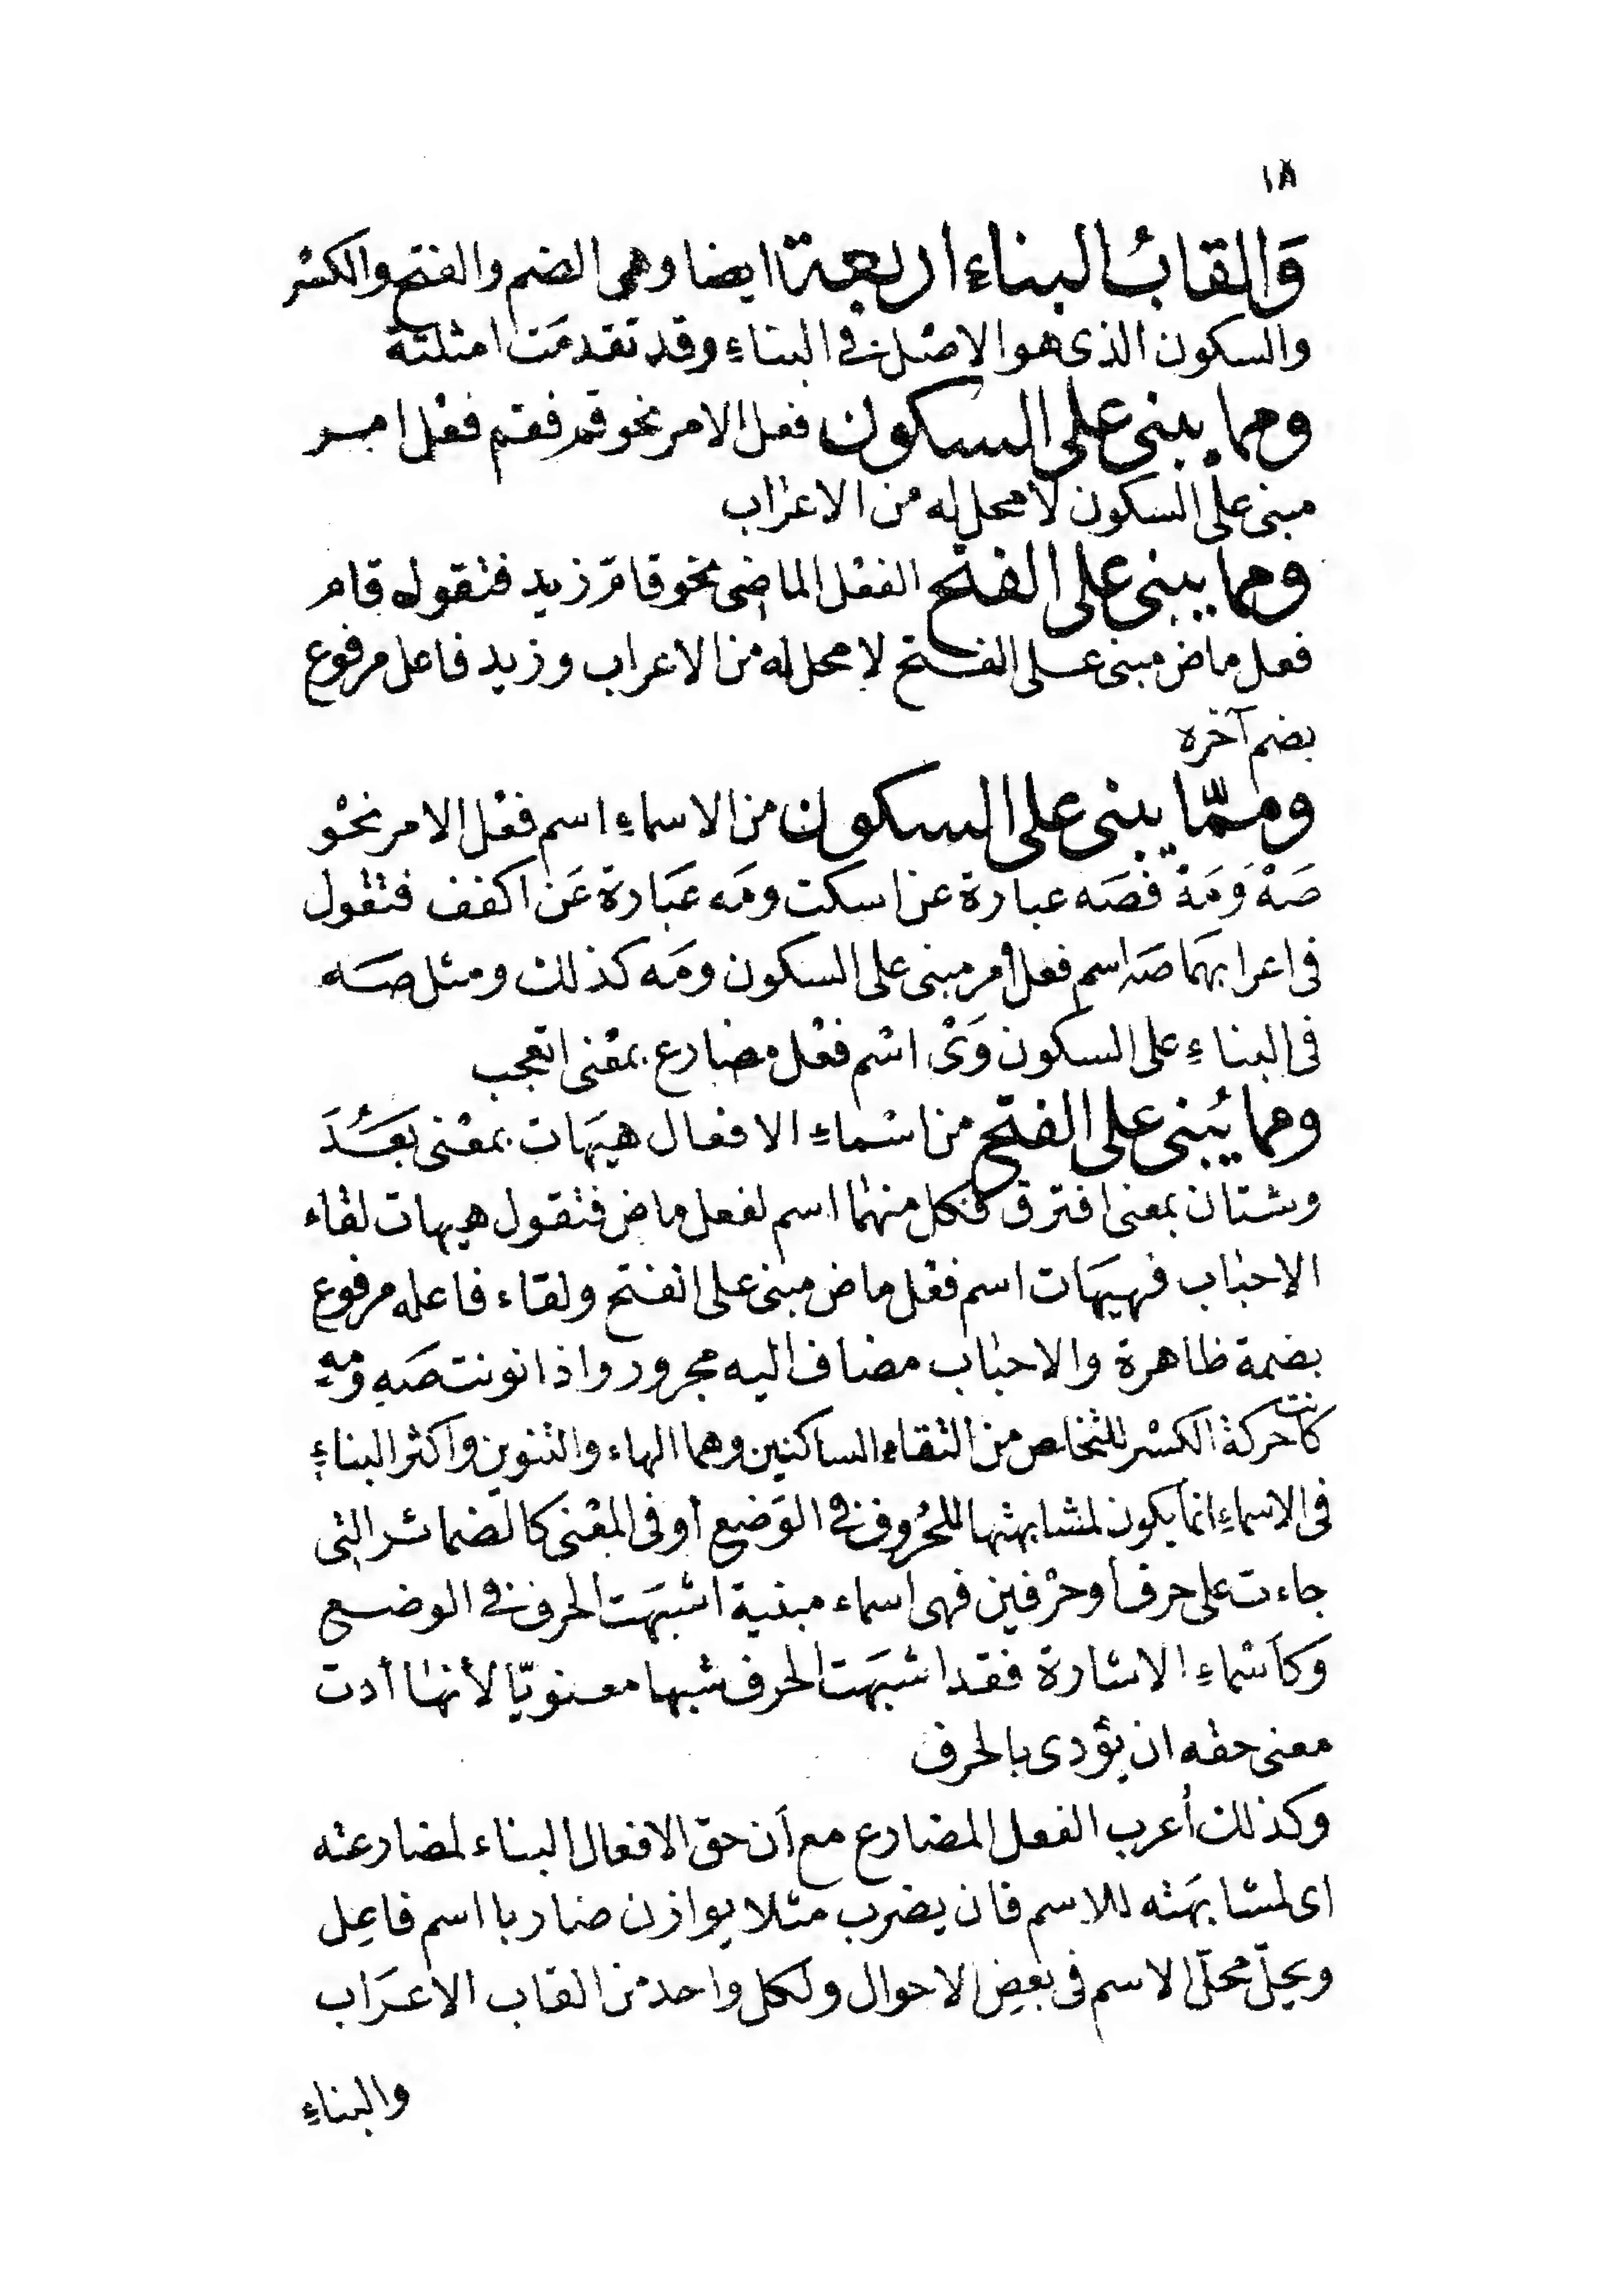 ١٨
وَالقابُ البناء اربعة ايضا وهى الضم والفتح والكسْر
والسكون الذى هو الاصْل فى البناءِ وقد تقدمَت امثلته
ومما يبنى على السكون فعل الامر نحو قم فقم فعْل امر
مبنى على السكون لا محل له من الاعراب
ومما يبنى على الفتح الفعْل الماضى نحو قامَ زيد فتقول قام
فعل ماض مبنى على الفتح لا محل له من الاعراب وزيد فاعل مرفوع
بضم آخره
وممّا يبنى على السكون من الاسماءِ اسم فعْل الامر نحْو
صَهْ وَمَهْ فصَه عبارة عن اسكت ومَه عبَارة عَن اكفف فتقول
فى اعرابهمَا صَه اسم فعل أمر مبنى على السكون ومَه كذلك ومثل صَه
فى البناءِ على السكون وَىْ اسْم فعْل مضارع بمعْنى اتعجب
ومما يُبنى على الفتح من اسْماءِ الافعال هيَهات بمعْنى بَعُدَ
وشتان بمعنى افترق فكل منهما اسم لفعل ماض فتقول هيهات لقاء
الاحباب فهيهَات اسم فعْل ماض مبنى على الفتح ولقاء فاعله مرفوع
بضمة ظاهرة والاحباب مضاف اليه مجرور واذا نونت صَهٍ ومهٍ
كانت حركة الكسْر للتخلص من التقاء الساكنين وهما الهاء والتنوين واكثر البناءِ
فى الاسماءِ انما يكون لمشابهتها للحُرُوف فى الوَضع أو فى المعْنى كالضمائر التى
جاءت على حرف أو حرْفين فهى اسماء مبنية اشبَهَت الحرف فى الوضع
وَكأسْماءِ الاشارة فقد اشبَهَت الحرف شبها معنويّا لأنها أدت
معنى حقه ان يؤدى بالحرف
وكذلك أعرب الفعل المضارع مع أن حقّ الافعال البناء لمضارعته
اى لمشابهَته للاسم فان يضرب مثلا يوازن ضاربا اسم فاعِل
ويحلّ محلّ الاسم فى بعض الاحوال ولكل واحد من القاب الاعرَاب
والبناءِ